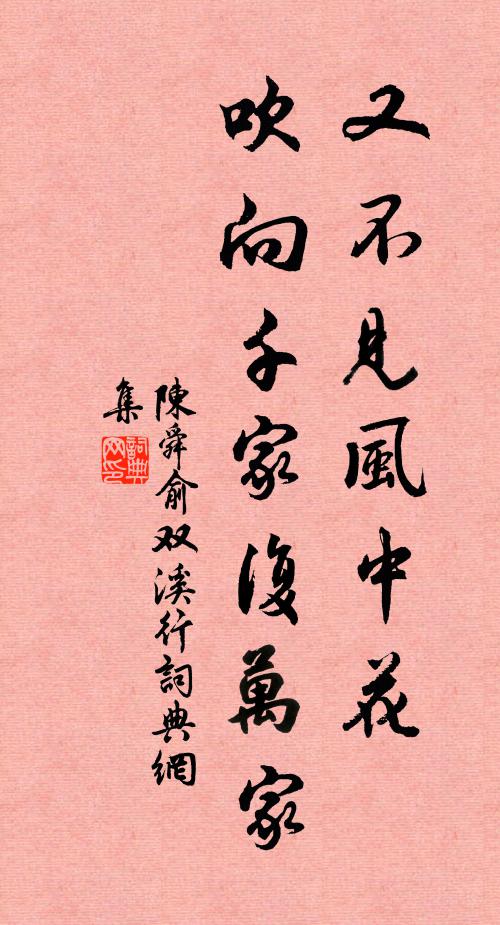 又不見風中花
吹向千家復萬家
陳舜俞双溪行詞典網
集
詞典網印